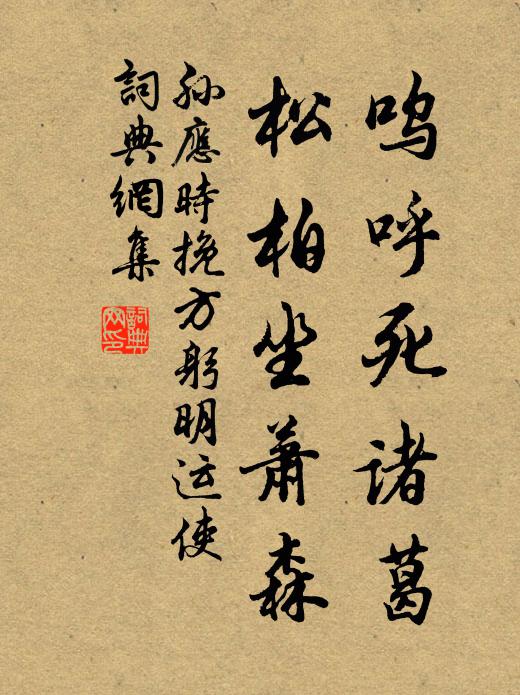 嗚呼死诸葛
松柏坐蕭森
孙應時挽方躬明运使
詞典網集
詞典网印